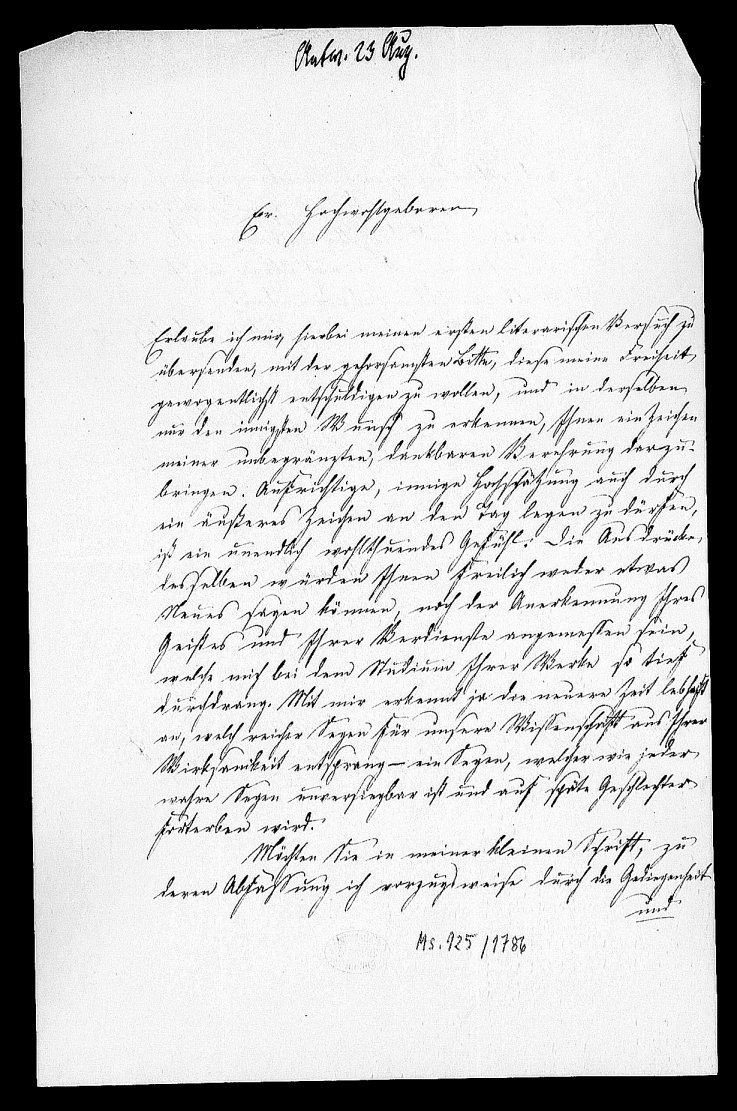 Antw. 23 Aug.
Ew. Hochwohlgeboren
Erlaube ich mir, hierbei meinen ersten literarischen Versuch zu
übersenden, mit der gehorsamsten Bitte, diese meine Freiheit
gewogentlichst entschuldigen zu wollen, und in derselben
nur den innigsten Wunsch zu erkennen, Ihnen ein Zeichen
meiner unbegränzten, dankbaren Verehrung darzu-
bringen. Aufrichtige, innige Hochschätzung auch durch
ein äußeres Zeichen an den Tag legen zu dürfen,
ist ein unendlich wohlthuendes Gefühl! Die Ausdrücke
desselben würden Ihnen freilich weder etwas
Neues sagen können, noch der Anerkennung Ihres
Geistes und Ihrer Verdienste angemessen sein,
welche mich bei dem Studium Ihrer Werke so tief
durchdrang. Mit mir erkennt ja die neuere Zeit lebhaft
an, welch reicher Segen für unsere Wissenschaft aus Ihrer
Wirksamkeit entsprang – ein Segen, welcher wie jeder
wahre Segen unversiegbar ist und auf späte Geschlechter
forterben wird.
Möchten Sie in meiner kleinen Schrift, zu
deren Abfassung ich vorzugsweise durch die Gediegenheit
und
Ms. 925/1786